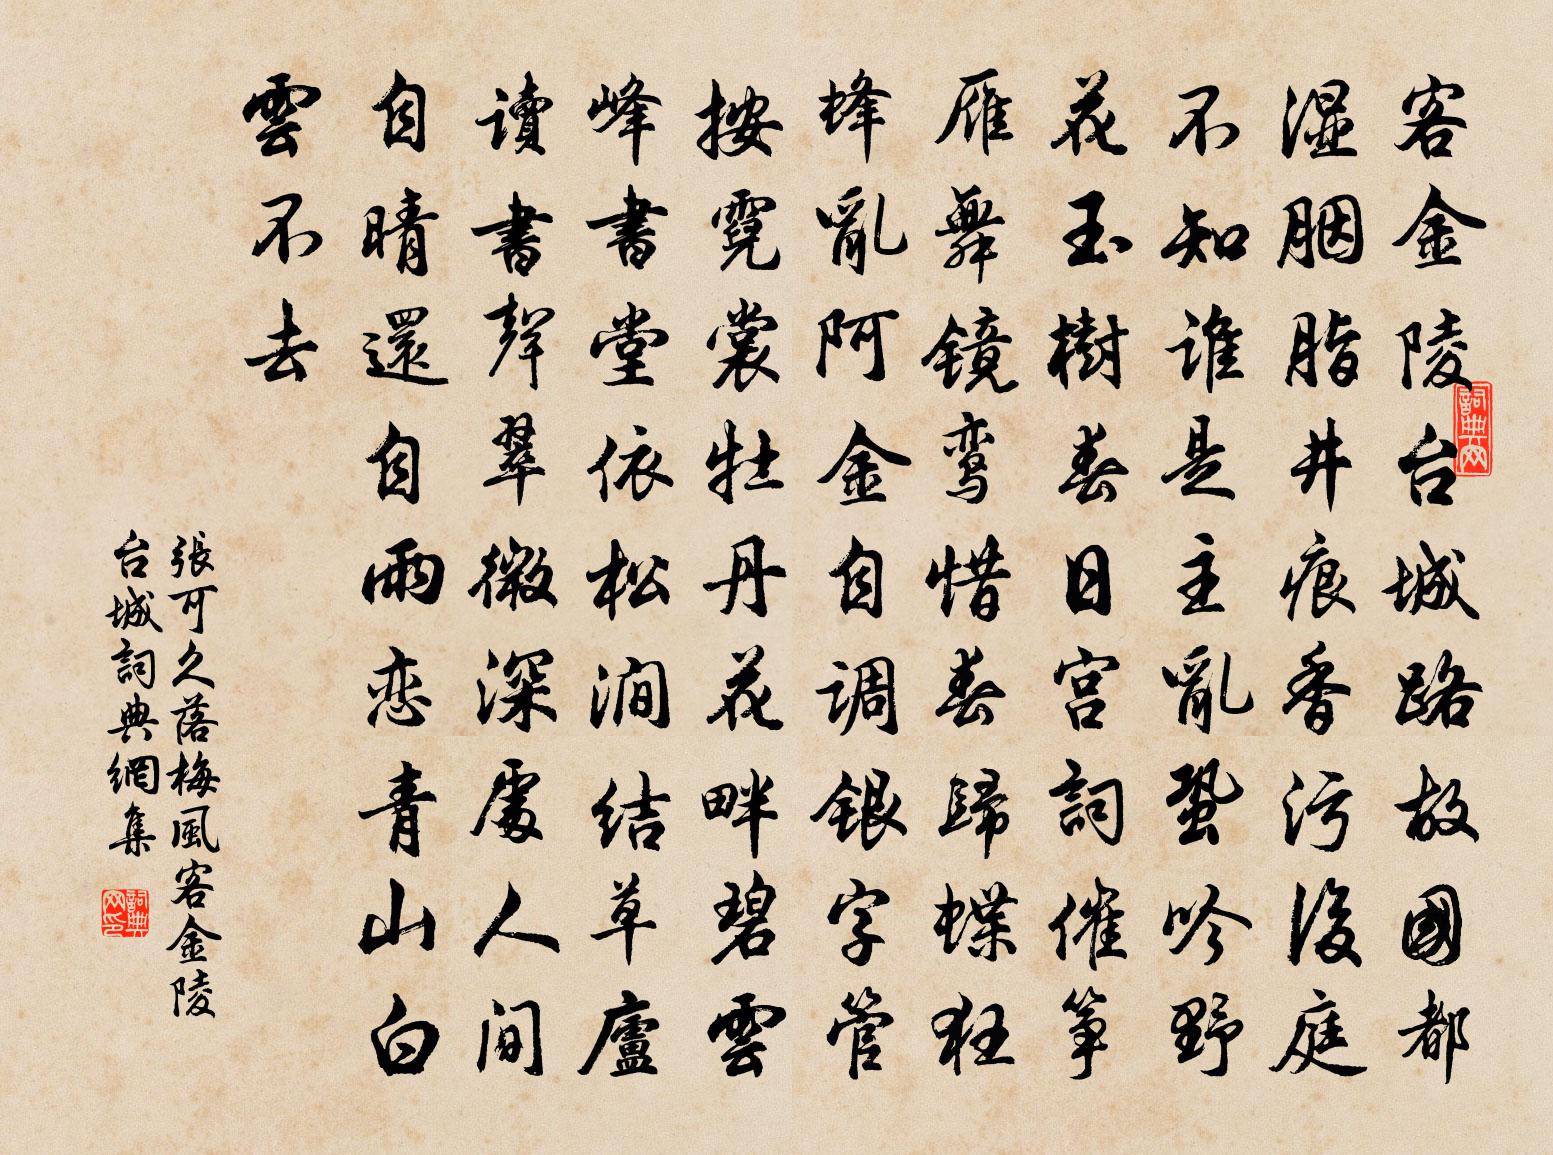 客金陵台城路故國都
湿胭脂井痕香污後庭
不知谁是主亂蛩吟野
花玉樹春日宫詞催筝
雁舞镜鸾惜春歸蝶狂
蜂亂阿金自调銀字管
按霓裳牡丹花畔碧雲
峰書堂依松涧结草廬
读書聲翠微深處人间
自晴還自雨恋青山白
雲不去
張可久落梅風客金陵
台城詞典網集
詞典网
詞典网印